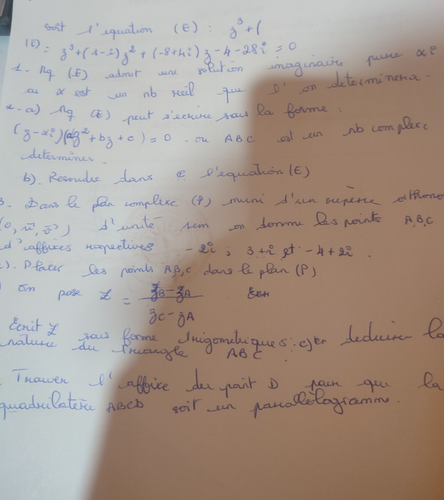 soit l'equation (E) : z³+(
(E) = z³+(1-i)z²+(-8+4i) z-4-28i = 0
1- Mq (E) admet une solution imaginaire pure xi
où x est un nb réel que l'on determinera
2-a) Mq (E) peut s'écrire sous la forme :
(z-xi)(az²+bz+c) = 0 . où ABC est un nb complexe
determiner
b). Resoudre dans ℂ l'equation (E)
3. Dans le plan complexe (P) muni d'un repère orthono
(0, u⃗, v⃗) d'unité 1cm on donne les points A,B,C
d'affixes respectives -2i ; 3+i et -4+2i .
. Placer les points A,B,C dans le plan (P)
on pose Z = zB-zA / zC-zA
Ecrit Z sous forme trigometriques. deduire la
nature du triangle ABC .
Trouver l'affixe du point D pour que la
quadrilatère ABCD soit un parallélogramme.